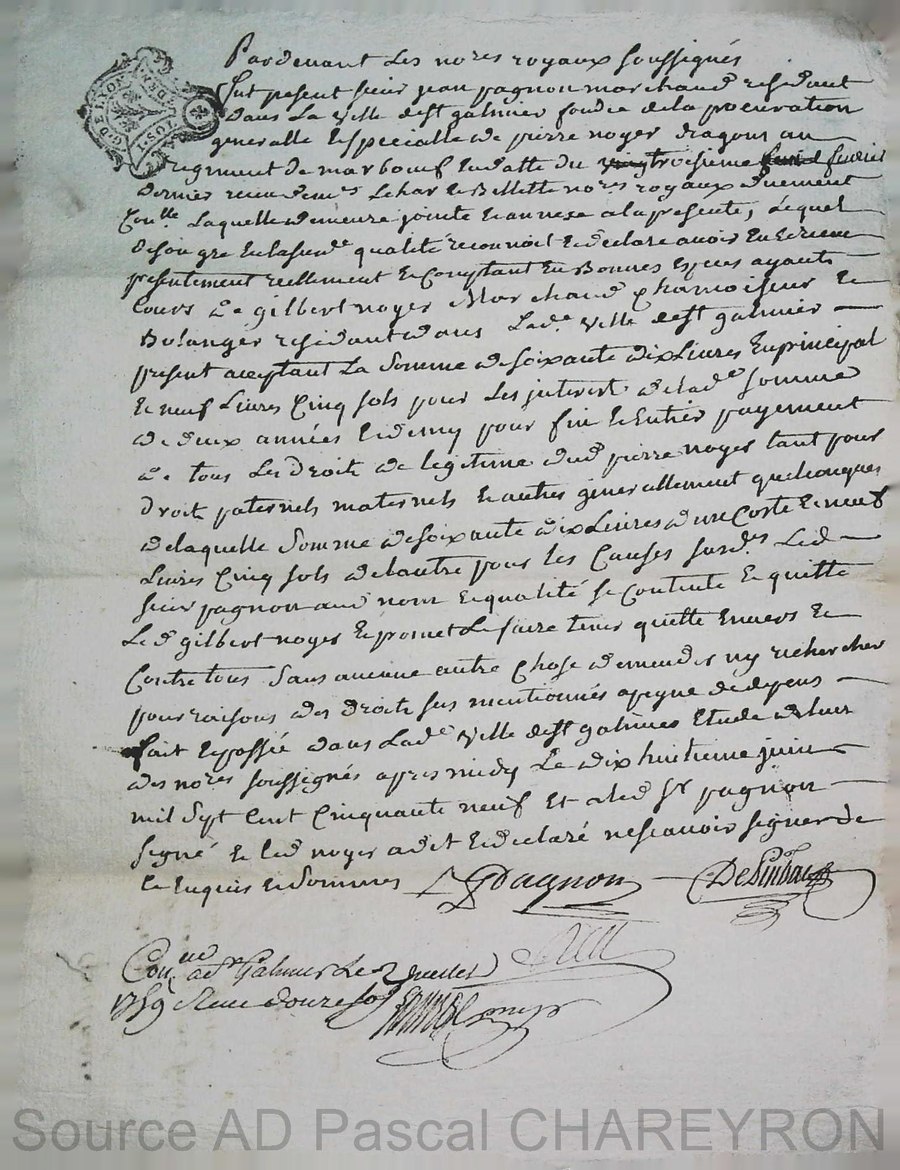 Pardevant Les no.res royaux soussignés
fut present sieur jean pagnon marchand residant
dans La ville de st galmier fondé de la procuration
generalle & specialle de pierre noyer dragons au
regiment de marboeuf en datte du troisieme fevrier
dernier receu de Lehar & Billette no.res royaux duement
Con.llé Laquelle demeure jointe & annexé a la presente, Lequel
de son gre & la sus d.e qualité reconnoit & declare avoir Eu & receu
presentement reellement & Comptant En Bonnes Especes ayants
Cours de gilbert noyer Marchand Chamoiseur &
Bolanger residant dans Lad.e ville de st galmier
present acceptant La Somme de soixante dix Livres En principal
& neuf Livres Cinq sols pour Les interest de lad.e somme
de deux années & demy pour fin & Entier payement
de tous Les droits de legitime dud pierre noyer tant pour
droits paternels maternels & autres generallement quelconques
de laquelle Somme de soixante dix Livres d'une Coste & neuf
Livres Cinq sols de Lautre pour les Causes susd.es Led
sieur pagnon aud nom & qualité se Contente & quitte
Led gilbert noyer & promet Le faire tenir quitte Envers &
Contre tous Sans aucune autre Chose demander ny rechercher
pour raisons des droits sus mentionnés a peyne de depens
fait & passé dans Lad.e ville de st galmier Etude de Lun
des no.res soussignés apres midy Le dix huitieme juin
mil sept cent Cinquante neuf Et a led s.r pagnon
signé & led noyer a dit & declaré ne scavoir signer de
ce Enquis & Sommés Pagnon
Con.llé a s.t Galmier Le 2 juillet
1759 Receu douze sols
Source AD Pascal CHAREYRON